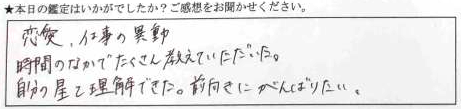 ★本日の鑑定はいかがでしたか?ご感想をお聞かせください。
恋愛、仕事の異動
時間のなかでたくさん教えていただいた。
自分の星も理解できた。前向きにがんばりたい。